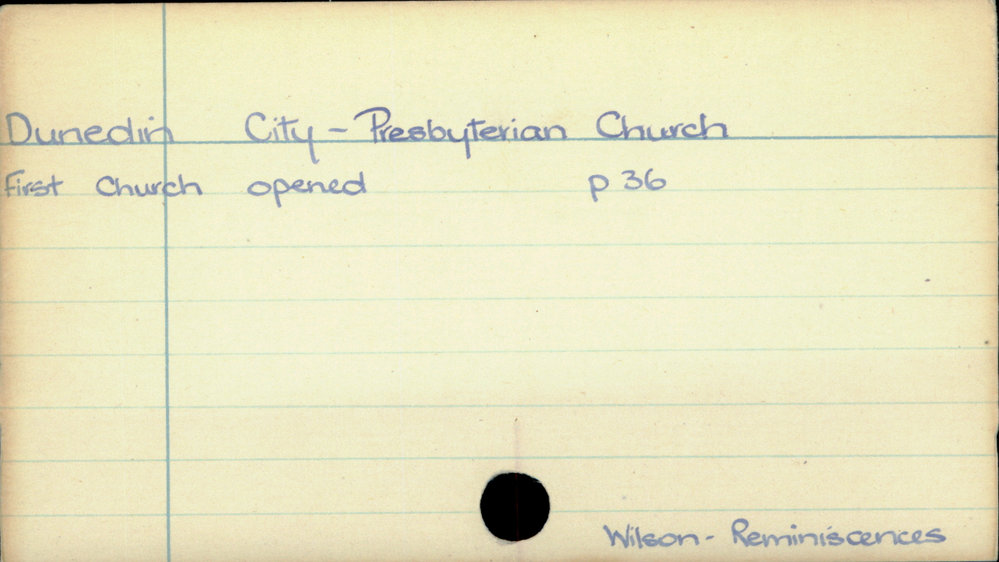 Dunedin City - Presbyterian Church
First Church opened p 36
Wilson - Reminiscences